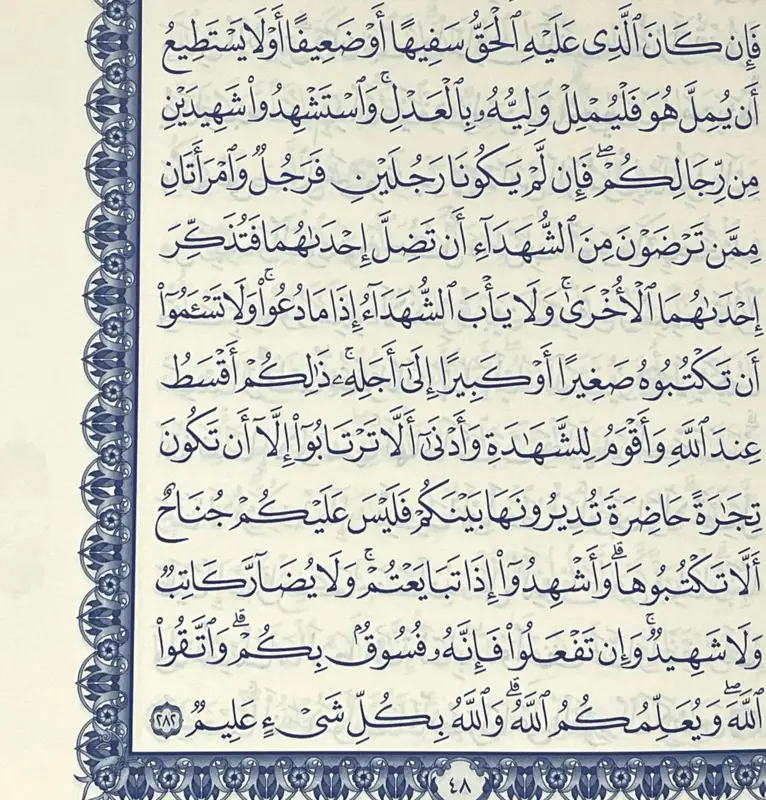 فَإِن كَانَ ٱلَّذِى عَلَيْهِ ٱلْحَقُّ سَفِيهًا أَوْ ضَعِيفًا أَوْ لَا يَسْتَطِيعُ
أَن يُمِلَّ هُوَ فَلْيُمْلِلْ وَلِيُّهُۥ بِٱلْعَدْلِ ۚ وَٱسْتَشْهِدُوا۟ شَهِيدَيْنِ
مِن رِّجَالِكُمْ ۖ فَإِن لَّمْ يَكُونَا رَجُلَيْنِ فَرَجُلٌ وَٱمْرَأَتَانِ
مِمَّن تَرْضَوْنَ مِنَ ٱلشُّهَدَآءِ أَن تَضِلَّ إِحْدَىٰهُمَا فَتُذَكِّرَ
إِحْدَىٰهُمَا ٱلْأُخْرَىٰ ۚ وَلَا يَأْبَ ٱلشُّهَدَآءُ إِذَا مَا دُعُوا۟ ۚ وَلَا تَسْـَٔمُوٓا۟
أَن تَكْتُبُوهُ صَغِيرًا أَوْ كَبِيرًا إِلَىٰٓ أَجَلِهِۦ ۚ ذَٰلِكُمْ أَقْسَطُ
عِندَ ٱللَّهِ وَأَقْوَمُ لِلشَّهَٰدَةِ وَأَدْنَىٰٓ أَلَّا تَرْتَابُوٓا۟ ۖ إِلَّآ أَن تَكُونَ
تِجَٰرَةً حَاضِرَةً تُدِيرُونَهَا بَيْنَكُمْ فَلَيْسَ عَلَيْكُمْ جُنَاحٌ
أَلَّا تَكْتُبُوهَا ۗ وَأَشْهِدُوٓا۟ إِذَا تَبَايَعْتُمْ ۚ وَلَا يُضَآرَّ كَاتِبٌ
وَلَا شَهِيدٌ ۚ وَإِن تَفْعَلُوا۟ فَإِنَّهُۥ فُسُوقٌۢ بِكُمْ ۗ وَٱتَّقُوا۟
ٱللَّهَ ۖ وَيُعَلِّمُكُمُ ٱللَّهُ ۗ وَٱللَّهُ بِكُلِّ شَىْءٍ عَلِيمٌ ٢٨٢
٤٨